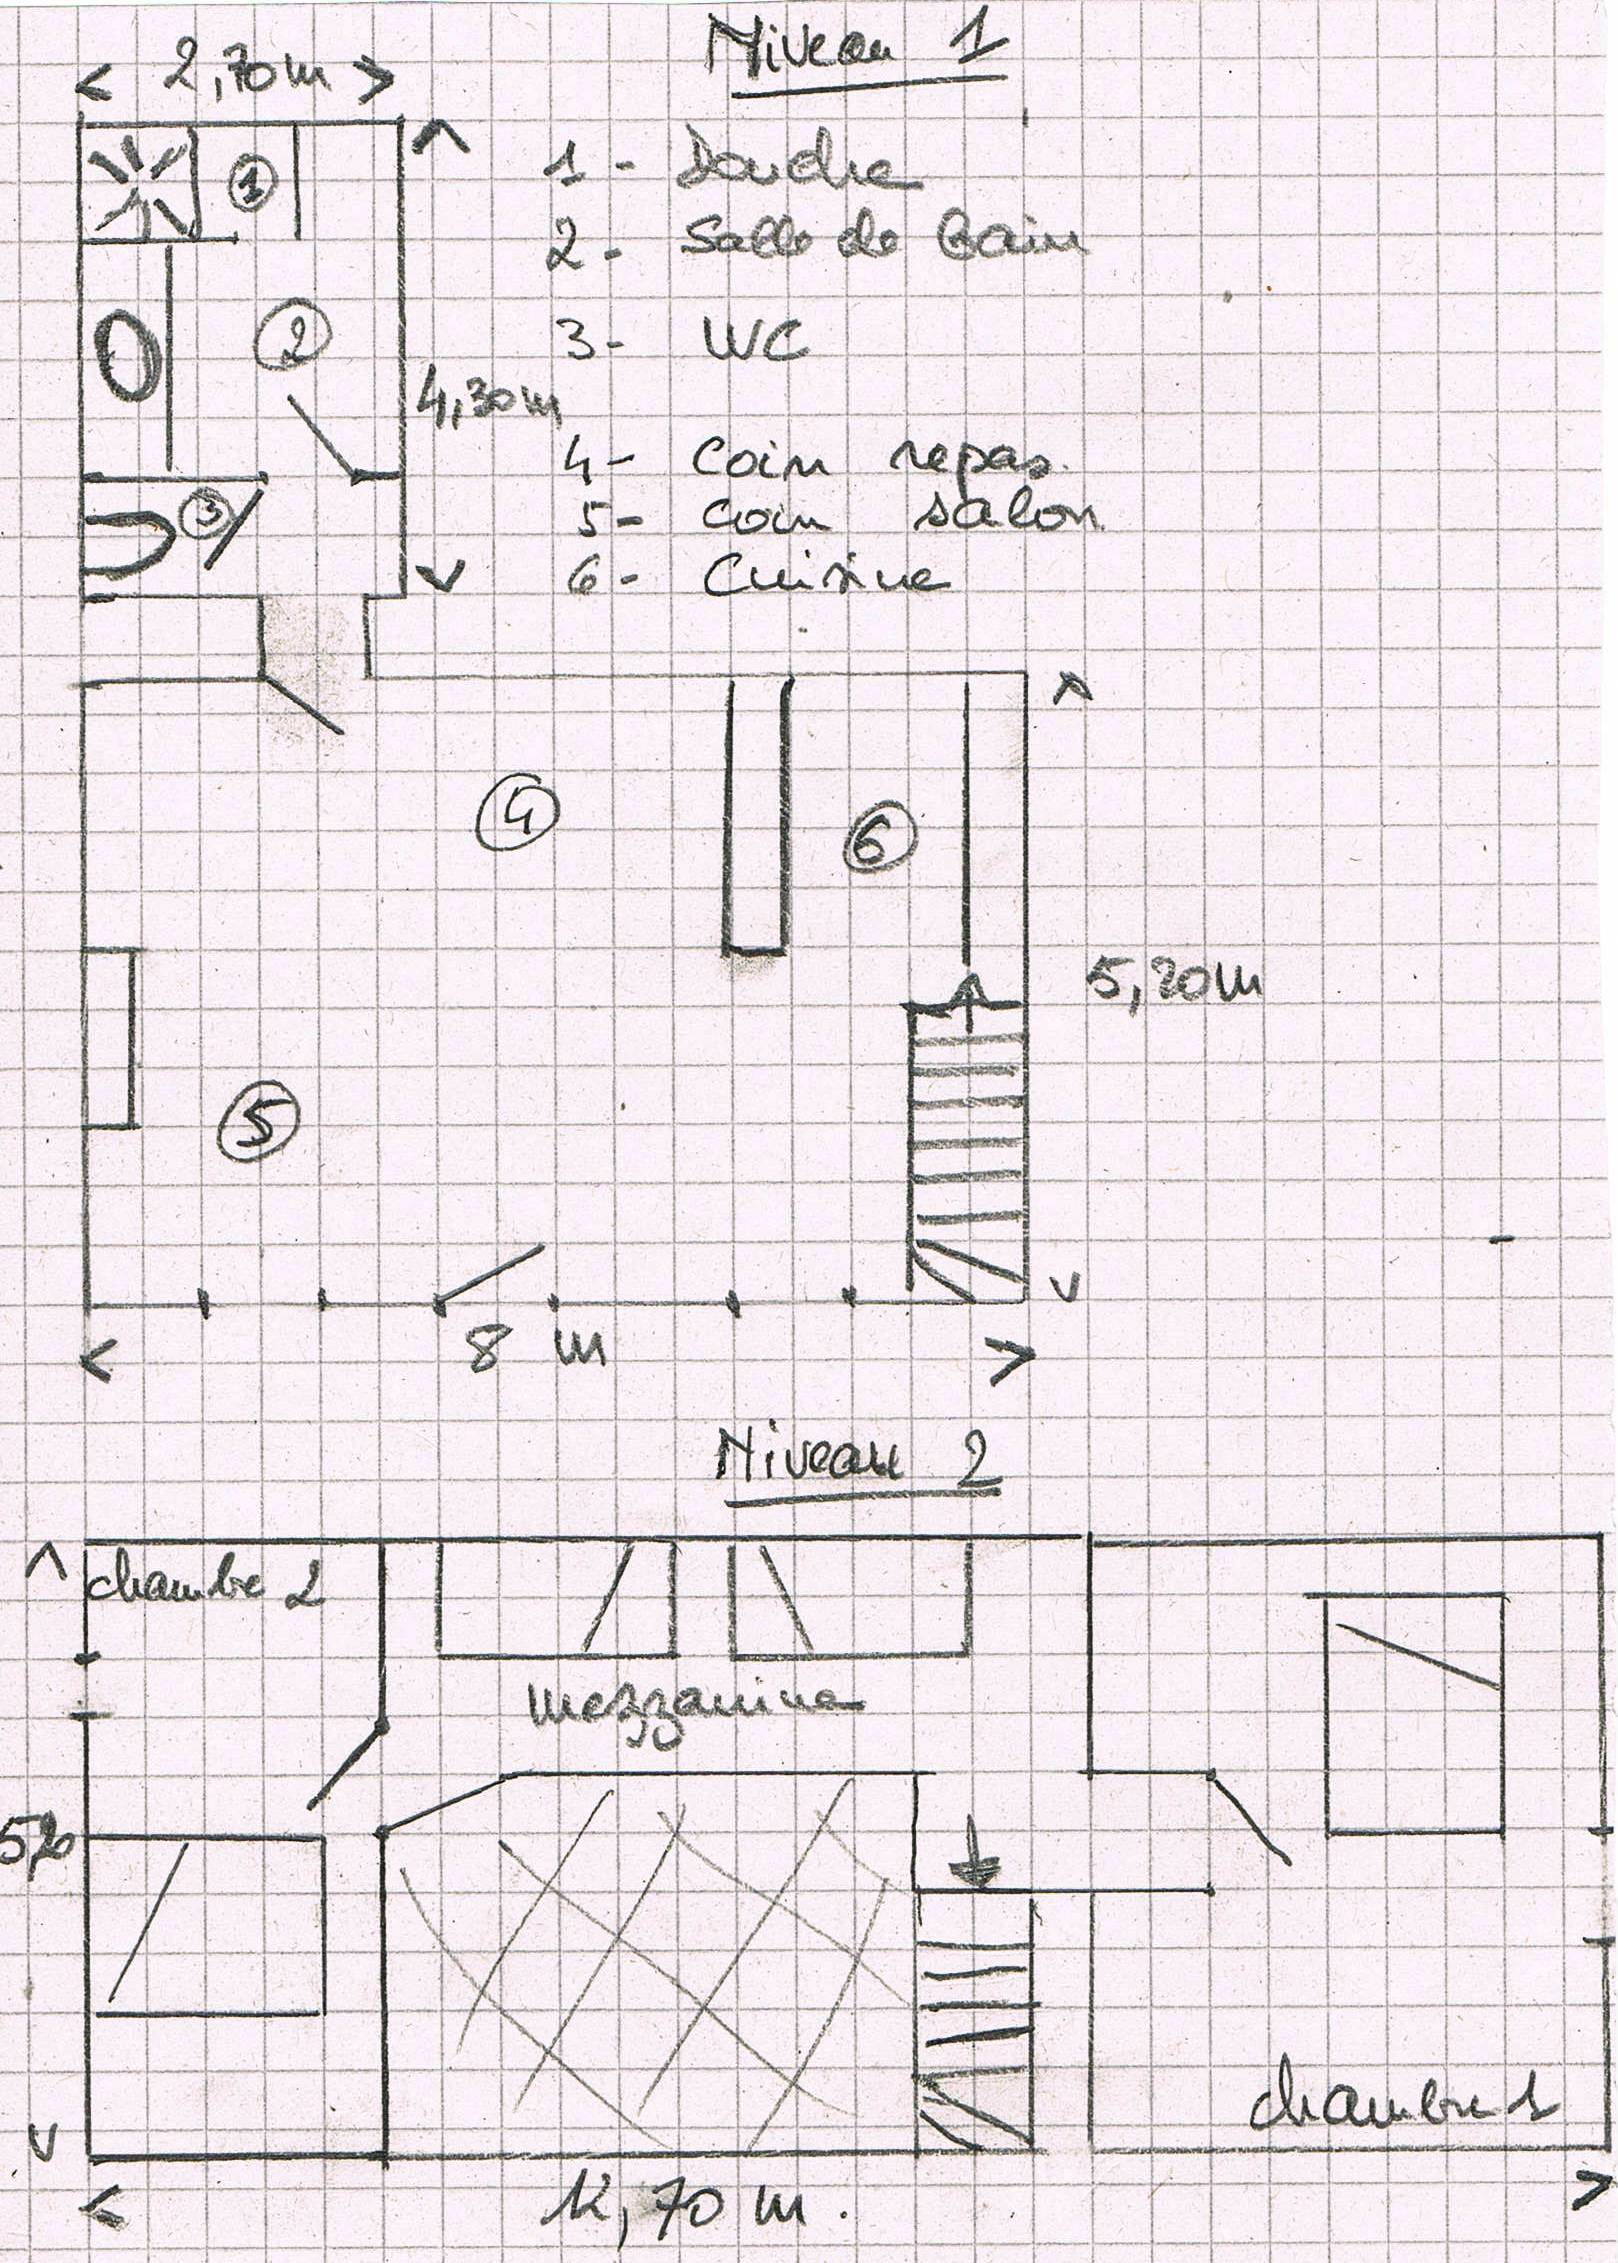 Niveau 1
2,70m
1 - Douche
2 - Salle de Bain
3 - WC
4 - Coin repas.
5 - Coin salon
6 - Cuisine
1
2
3
4,30m
4
6
5
5,20m
8 m
Niveau 2
chambre 2
mezzanine
5,20
chambre 1
12,70 m.